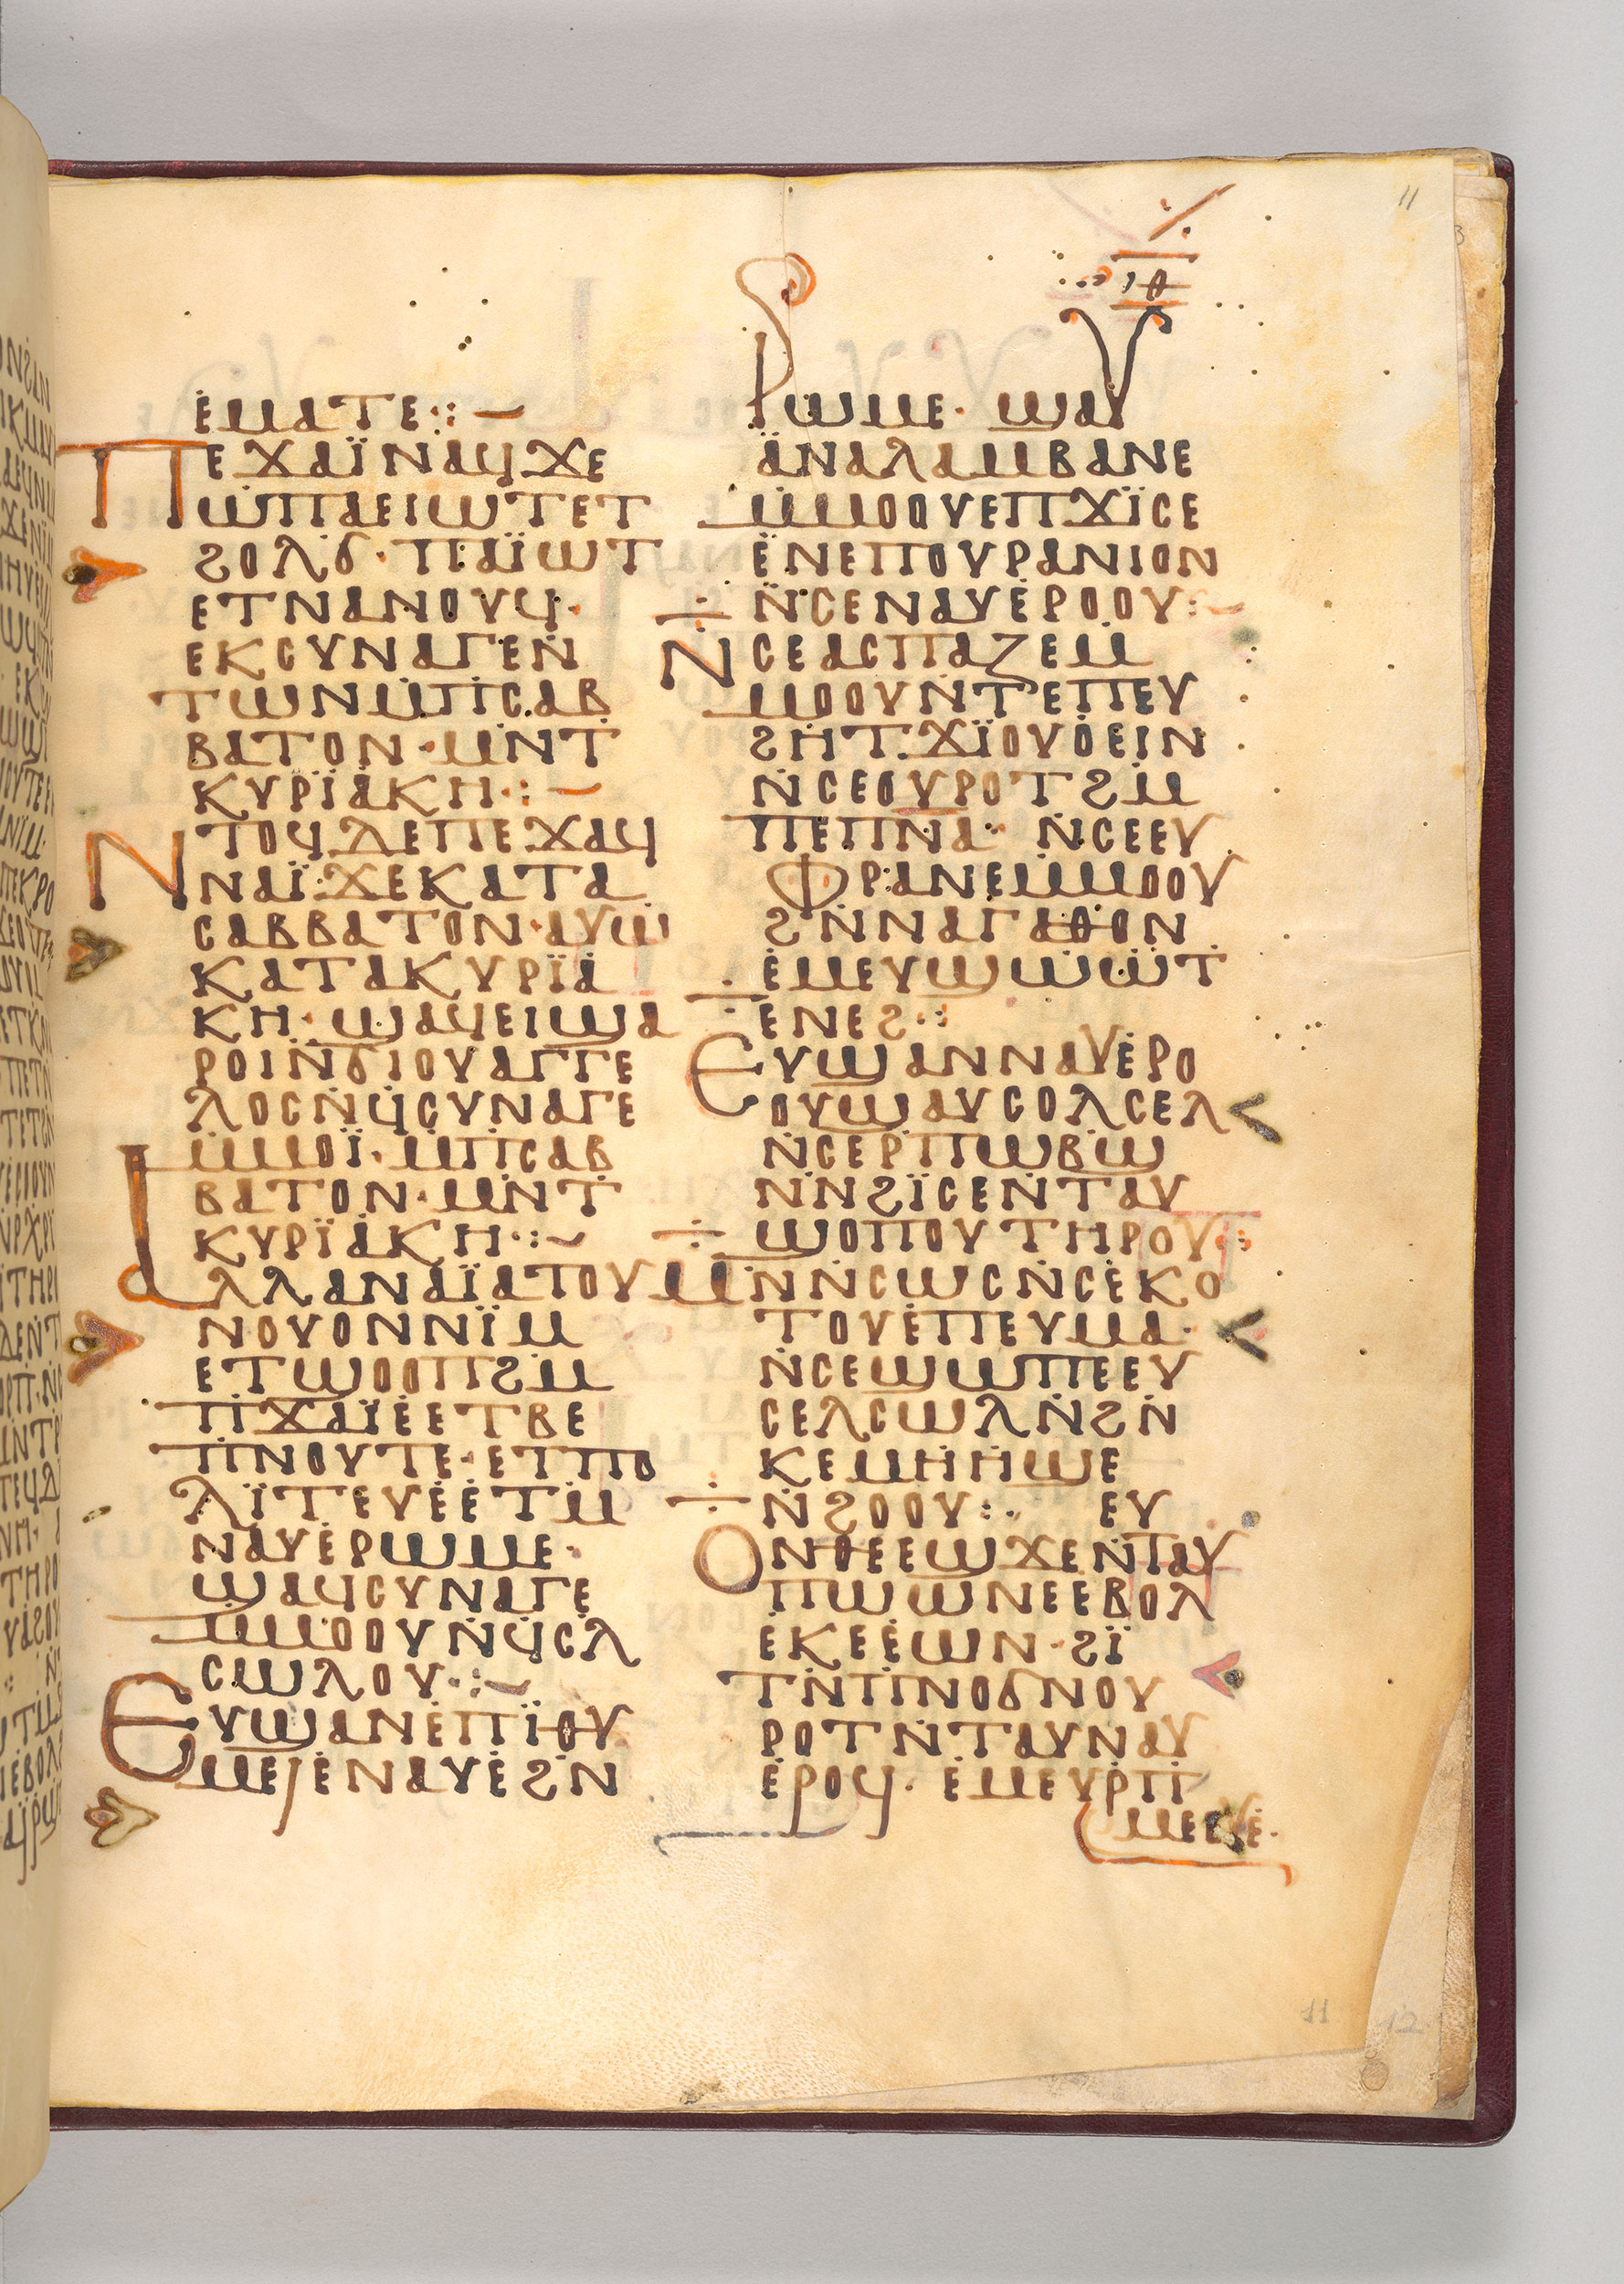 11
ⲓⲑ
ⲉ̇ⲙⲁⲧⲉ·:·—
ⲡⲉϫⲁⲓ̈ⲛⲁϥϫⲉ
ⲱ̇ⲡⲁⲉⲓⲱⲧⲉⲧ
ϩⲟⲗϭ· ⲡⲁⲓ̈ⲱⲧ
ⲉⲧⲛⲁⲛⲟⲩϥ·
ⲉⲕⲥⲩⲛⲁⲅⲉⲛ̇
ⲧⲱⲛⲙ̇ⲡⲥⲁⲃ
ⲃⲁⲧⲟⲛ·ⲙⲛ̇ⲧ
ⲕⲩⲣⲓ̈ⲁ̇ⲕⲏ·:·—
ⲛⲧⲟϥⲇⲉⲡⲉϫⲁϥ
ⲛⲁⲓ̈·ϫⲉⲕⲁⲧⲁ
ⲥⲁⲃⲃⲁⲧⲟⲛ·ⲁⲩⲱ
ⲕⲁⲧⲁⲕⲩⲣⲓ̈ⲁ̇
ⲕⲏ·ϣⲁϥⲉⲓϣⲁ
ⲣⲟⲓⲛ̇ϭⲓⲟⲩⲁⲅⲅⲉ
ⲗⲟⲥⲛ̇ϥⲥⲩⲛⲁⲅⲉ
ⲙ̇ⲙⲟⲓ̈·ⲙ̇ⲡⲥⲁⲃ
ⲃⲁⲧⲟⲛ·ⲙⲛ̇ⲧ
ⲕⲩⲣⲓ̈ⲁ̇ⲕⲏ·:·~
ⲁⲗⲗⲁⲛⲁⲓ̈ⲁⲧⲟⲩ
ⲛⲟⲩⲟⲛⲛⲓ̈ⲙ
ⲉⲧϣⲟⲟⲡϩⲙ̇
ⲡϫⲁⲓ̈ⲉ̇ⲉⲧⲃⲉ
ⲡⲛⲟⲩⲧⲉ·ⲉⲧⲡⲟ
ⲗⲓ̈ⲧⲉⲩⲉ̇ⲉⲧⲙ̇
ⲛⲁⲩⲉ̇ⲣⲱⲙⲉ·
ϣⲁϥⲥⲩⲛⲁⲅⲉ
ⲙ̇ⲙⲟⲟⲩⲛ̇ϥⲥⲗ̇
ⲥⲱⲗⲟⲩ·:·~
ⲉⲩϣⲁⲛⲉ̇ⲡⲓ̈ⲑⲩ
ⲙⲉⲓⲉ̇ⲛⲁⲩⲉ̇ϩⲛ̇
ⲣⲱⲙⲉ· ϣⲁⲩ
ⲁ̈ⲛⲁⲗⲁⲙⲃⲁⲛⲉ
ⲙ̇ⲙⲟⲟⲩⲉⲡϫⲓ̈ⲥⲉ
ⲉ̈ⲛⲉⲡⲟⲩⲣⲁⲛⲓⲟⲛ
ⲛ̈ⲥⲉⲛⲁⲩⲉ̇ⲣⲟⲟⲩ:~
ⲛ̇ⲥⲉⲁⲥⲡⲁⲍⲉⲙ̇
ⲙⲟⲟⲩⲛ̇ⲧⲉⲡⲉⲩ
ϩⲏⲧ·ϫⲓ̈ⲟⲩⲟ̇ⲉⲓⲛ
ⲛ̇ⲥⲉⲟⲩⲣⲟⲧϩⲙ̇
ⲡⲉⲡⲛ̅ⲁ̅· ⲛ̇ⲥⲉⲉⲩ
ⲫⲣⲁⲛⲉⲙ̇ⲙⲟⲟⲩ
ϩⲛ̇ⲛⲁⲅⲁⲑⲟⲛ
ⲉ̇ⲙⲉⲩϣⲱ̇ⲱ̈ⲧ
ⲉⲛⲉϩ·:
ⲉⲩϣⲁⲛⲛⲁⲩⲉ̇ⲣⲟ
ⲟⲩϣⲁⲩⲥⲟⲗⲥⲉⲗ
ⲛ̇ⲥⲉⲣ̇ⲡⲱⲃϣ
ⲛ̇ⲛ̇ϩⲓ̈ⲥⲉⲛ̇ⲧⲁⲩ
ϣⲟⲡⲟⲩⲧⲏⲣⲟⲩ·:
ⲙⲛ̇ⲛ̇ⲥⲱⲥⲛ̇ⲥⲉ̇ⲕⲟ
ⲧⲟⲩⲉ̇ⲡⲉⲩⲙⲁ·
ⲛ̇ⲥⲉϣⲱⲡⲉⲉⲩ
ⲥⲉⲗⲥⲱⲗⲛ̇ϩⲛ̇
ⲕⲉⲙⲏⲏϣⲉ
ⲛ̇ϩⲟⲟⲩ:· ⲉⲩ
ⲟⲛⲑⲉⲉϣϫⲉⲛ̇ⲧⲁⲩ
ⲡⲱⲱⲛⲉⲉⲃⲟⲗ
ⲉ̇ⲕⲉⲉ̇ⲱⲛ·ϩⲓ̈
ⲧⲛ̇ⲡⲛⲟϭⲛⲟⲩ
ⲣⲟⲧⲛ̇ⲧⲁⲩⲛⲁⲩ
ⲉ̇ⲣⲟϥ· ⲉ̇ⲙⲉⲩⲣ̇ⲡ
ⲙⲉⲉⲩⲉ̇·
11
12